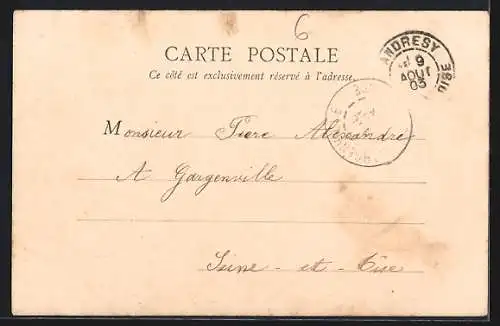 6
CARTE POSTALE
Ce côté est exclusivement réservé à l'adresse.
ANDRESY
9
AOUT
03
OISE
Monsieur Piere Alexandre
A Gargenville
Seine-et-Oise